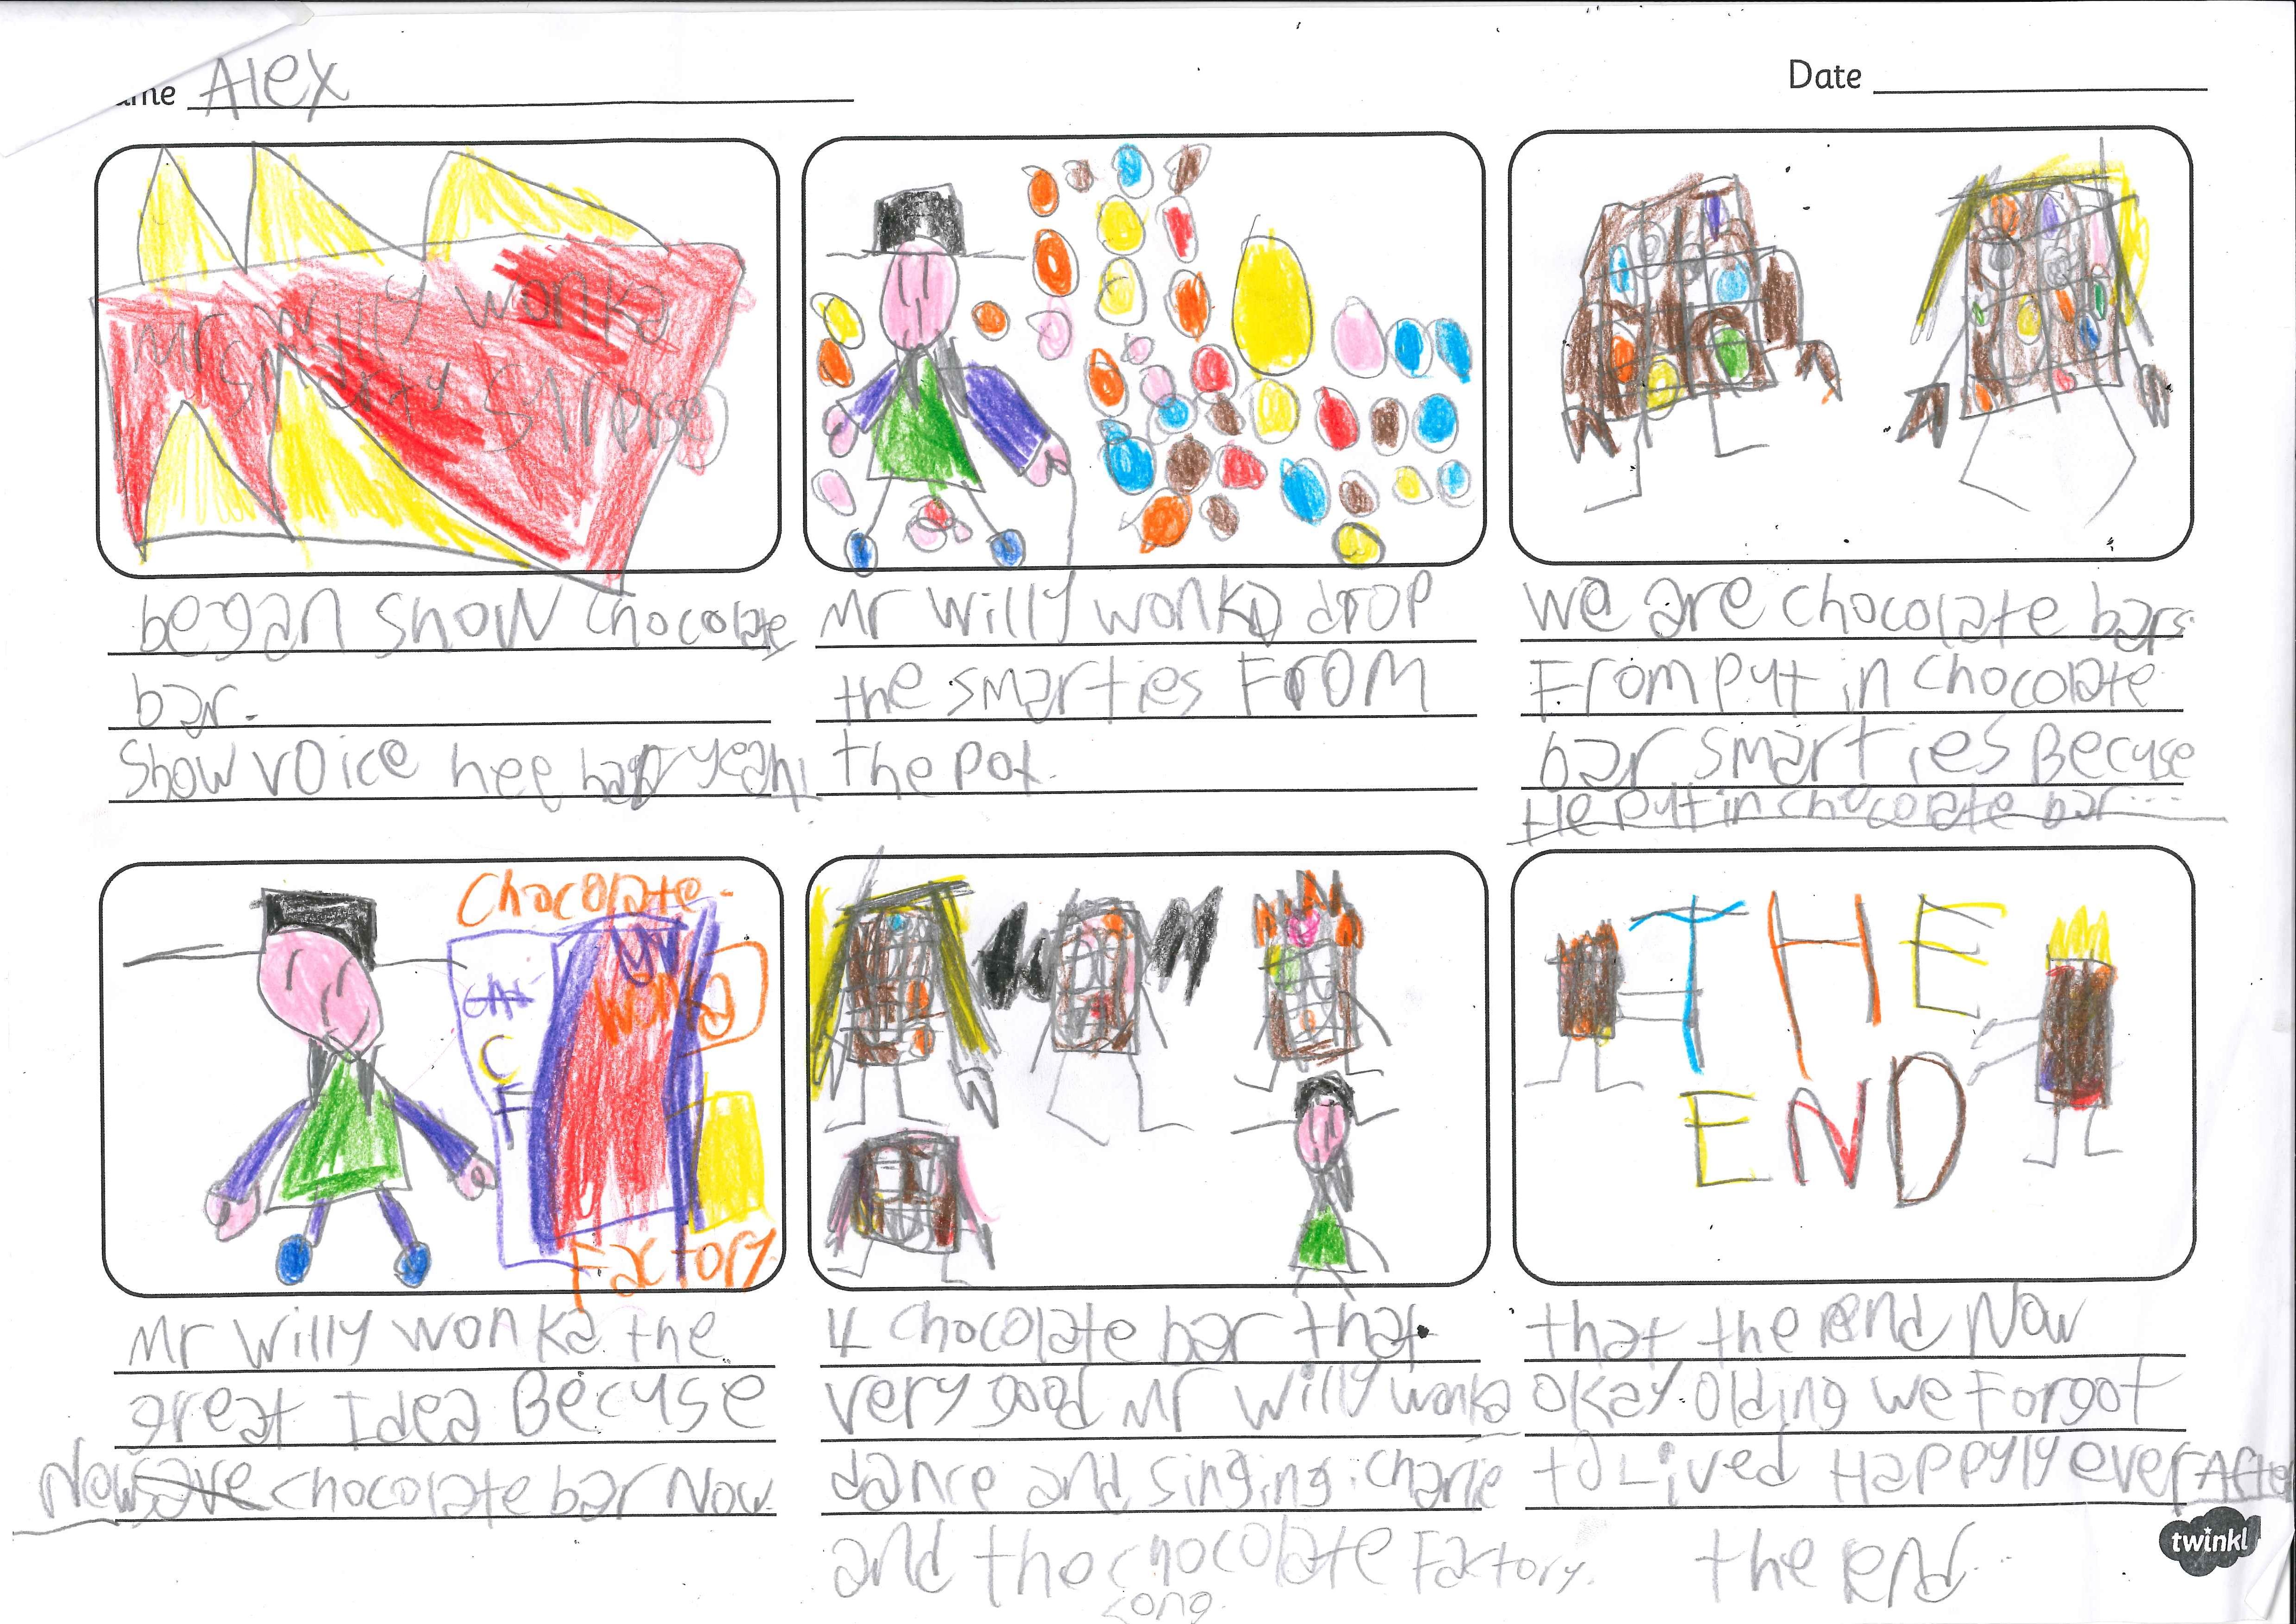 Name Alex
Date
Mr Willy Wonka
Smarty Surprise
began show chocolate
bar.
Show voice hee haa yeah!
Mr Willy wonka drop
the smarties From
the pot.
we are chocolate bars.
From put in chocolate
bar smarties Becuse
He put in chocolate bar...
Chacolate
C
F
Wonka
Factory
Mr Willy wonka the
great Idea Becuse
Now save chocolate bar Now.
4 chocolate bar that
very good Mr Willy wonka
dance and singing. charlie
and the chocolate Factory.
song.
THE
END
that the end Now
okay. Olding we Forgot
to Lived Happyly ever After
the end...
twinkl